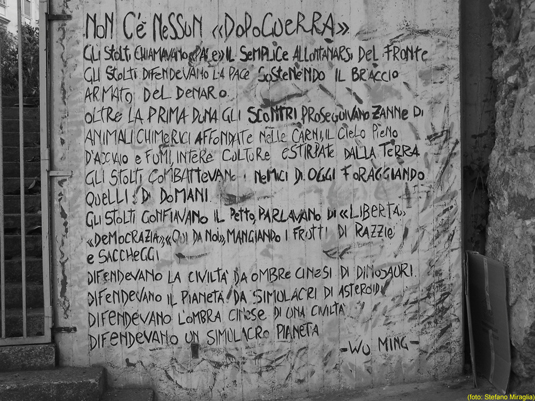 NON C'È NESSUN «DOPOGUERRA».
GLI STOLTI CHIAMAVANO «PACE» IL SEMPLICE ALLONTANARSI DEL FRONTE
GLI STOLTI DIFENDEVANO LA PACE SOSTENENDO IL BRACCIO
ARMATO DEL DENARO.
OLTRE LA PRIMA DUNA GLI SCONTRI PROSEGUIVANO ZANNE DI
ANIMALI CHIMERICI AFFONDATE NELLE CARNI, IL CIELO PIENO
D'ACCIAIO E FUMI, INTERE COLTURE ESTIRPATE DALLA TERRA
GLI STOLTI COMBATTEVANO I NEMICI DI OGGI FORAGGIANDO
QUELLI DI DOMANI
GLI STOLTI GONFIAVANO IL PETTO, PARLAVANO DI «LIBERTÀ»
«DEMOCRAZIA» «QUI DA NOI», MANGIANDO I FRUTTI DI RAZZIE
E SACCHEGGI
DIFENDEVANO LA CIVILTÀ DA OMBRE CINESI DI DINOSAURI.
DIFENDEVANO IL PIANETA DA SIMULACRI DI ASTEROIDI
DIFENDEVANO L'OMBRA CINESE DI UNA CIVILTÀ
DIFENDEVANO UN SIMULACRO PIANETA
-WU MING-
(foto: Stefano Miraglia)